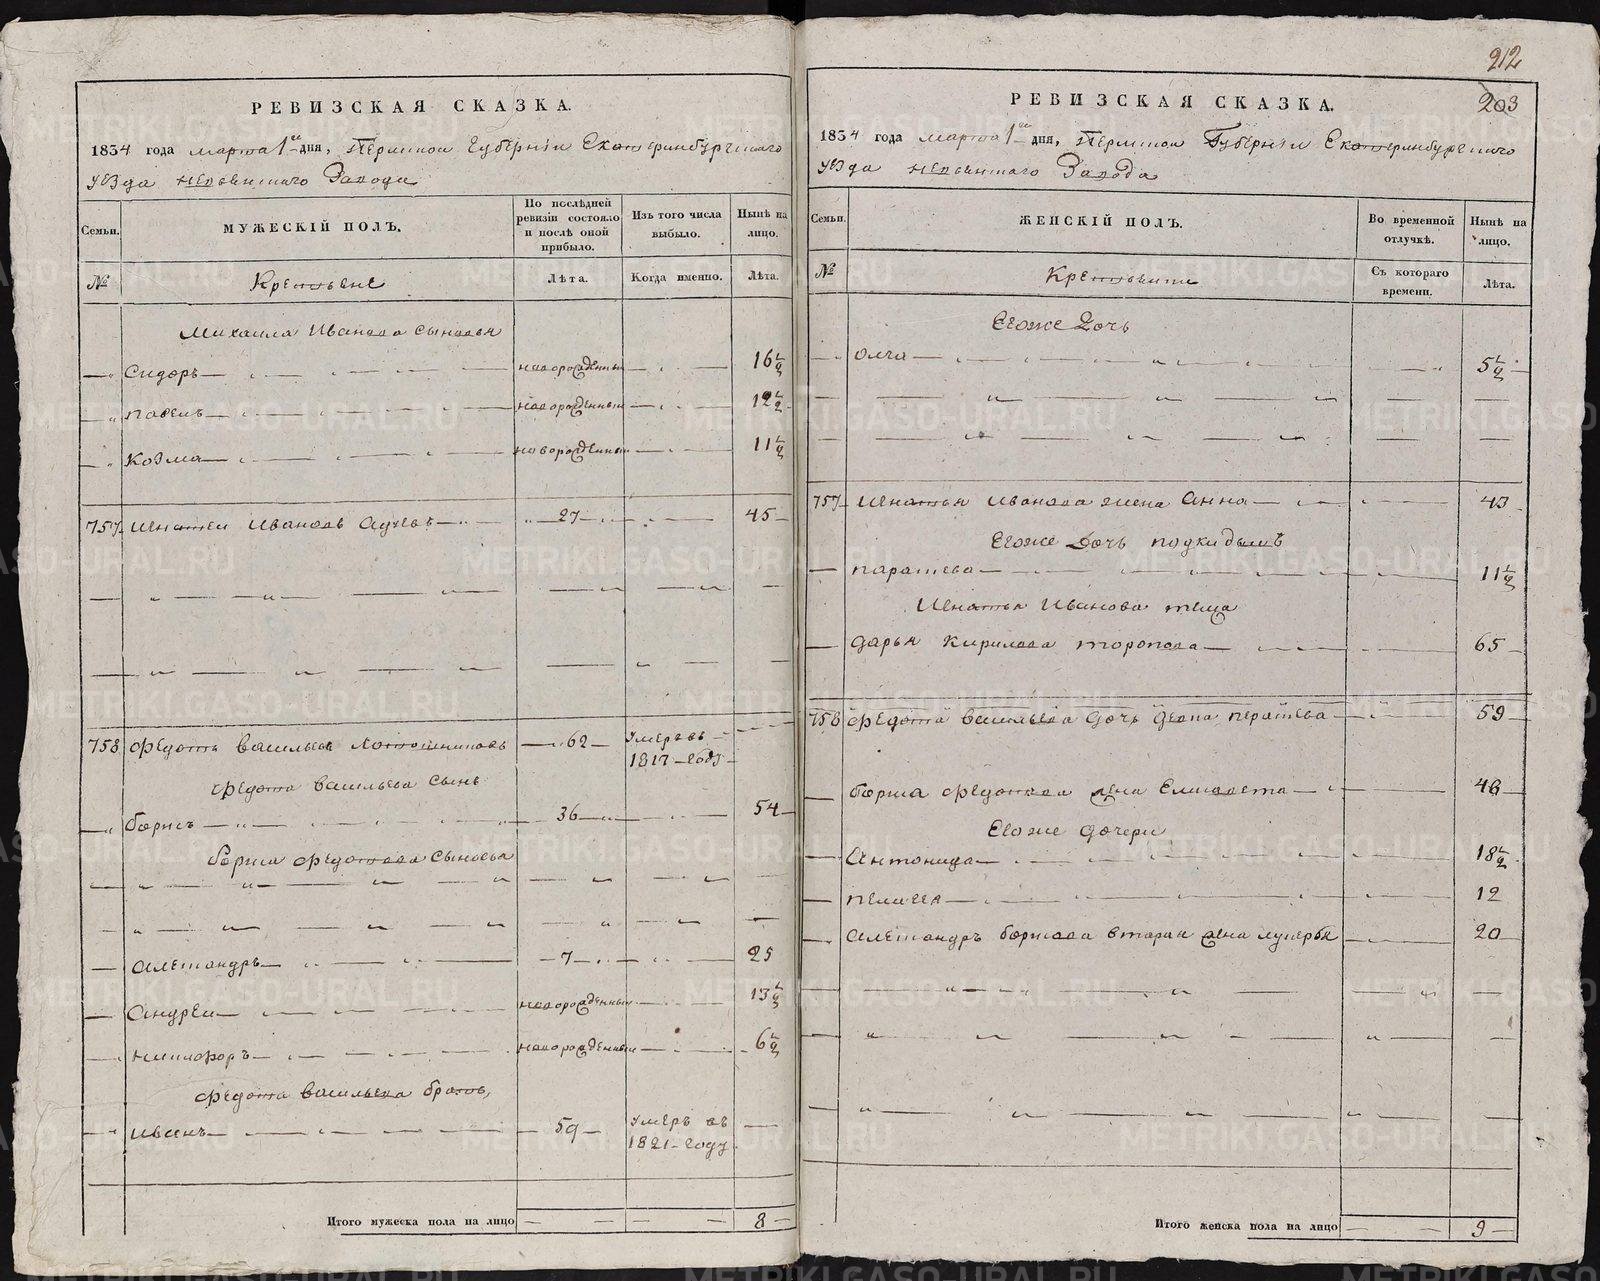 РЕВИЗСКАЯ СКАЗКА.
1834 года марта 1го дня, Пермской Губернии Екатеринбургского
уезда невьянского Завода
Семьи.
МУЖЕСКІЙ ПОЛЪ.
По послѣдней ревизіи состояло и послѣ оной прибыло.
Изъ того числа выбыло.
Нынѣ на лицо.
№
Крестьяне
Лѣта.
Когда именно.
Лѣта.
Михаила Иванова сыновья
Сидоръ новорожденныи 16 ½
павелъ новорожденныи 12 ½
Козма новорожденныи 11 ½
757 игнатеи Ивановъ 27 45
758 Федотъ васильевъ 62 умеръ въ
1817 году
федота васильева сынъ
борисъ 36 54
бориса федотова сыновья
александръ 7 25
Андреи новорожденныи 13 ½
никифоръ новорожденныи 6 ½
федота васильева братъ
иванъ 59 умеръ въ
1821 году
Итого мужеска пола на лицо 8
212
203
РЕВИЗСКАЯ СКАЗКА.
1834 года марта 1го дня, Пермской Губернии Екатеринбургского
уезда невьянского Завода
Семьи.
ЖЕНСКІЙ ПОЛЪ.
Во временной отлучкѣ.
Нынѣ на лицо.
№
Крестьянки
Съ котораго времени.
Лѣта.
Егоже дочь
олга 5 ½
757 игнатья иванова жена анна 43
Егоже дочь подкидышъ
парасева 11 ½
игнатья иванова теща
дарья кирилова торопова 65
758 федота васильева дочь девка парасева 59
бориса федотова жена елисавета 48
Егоже дочери
антонида 18 ½
пелагея 12
александръ борисова вторая жена лукерья 20
Итого женска пола на лицо 9
METRIKI.GASO-URAL.RU